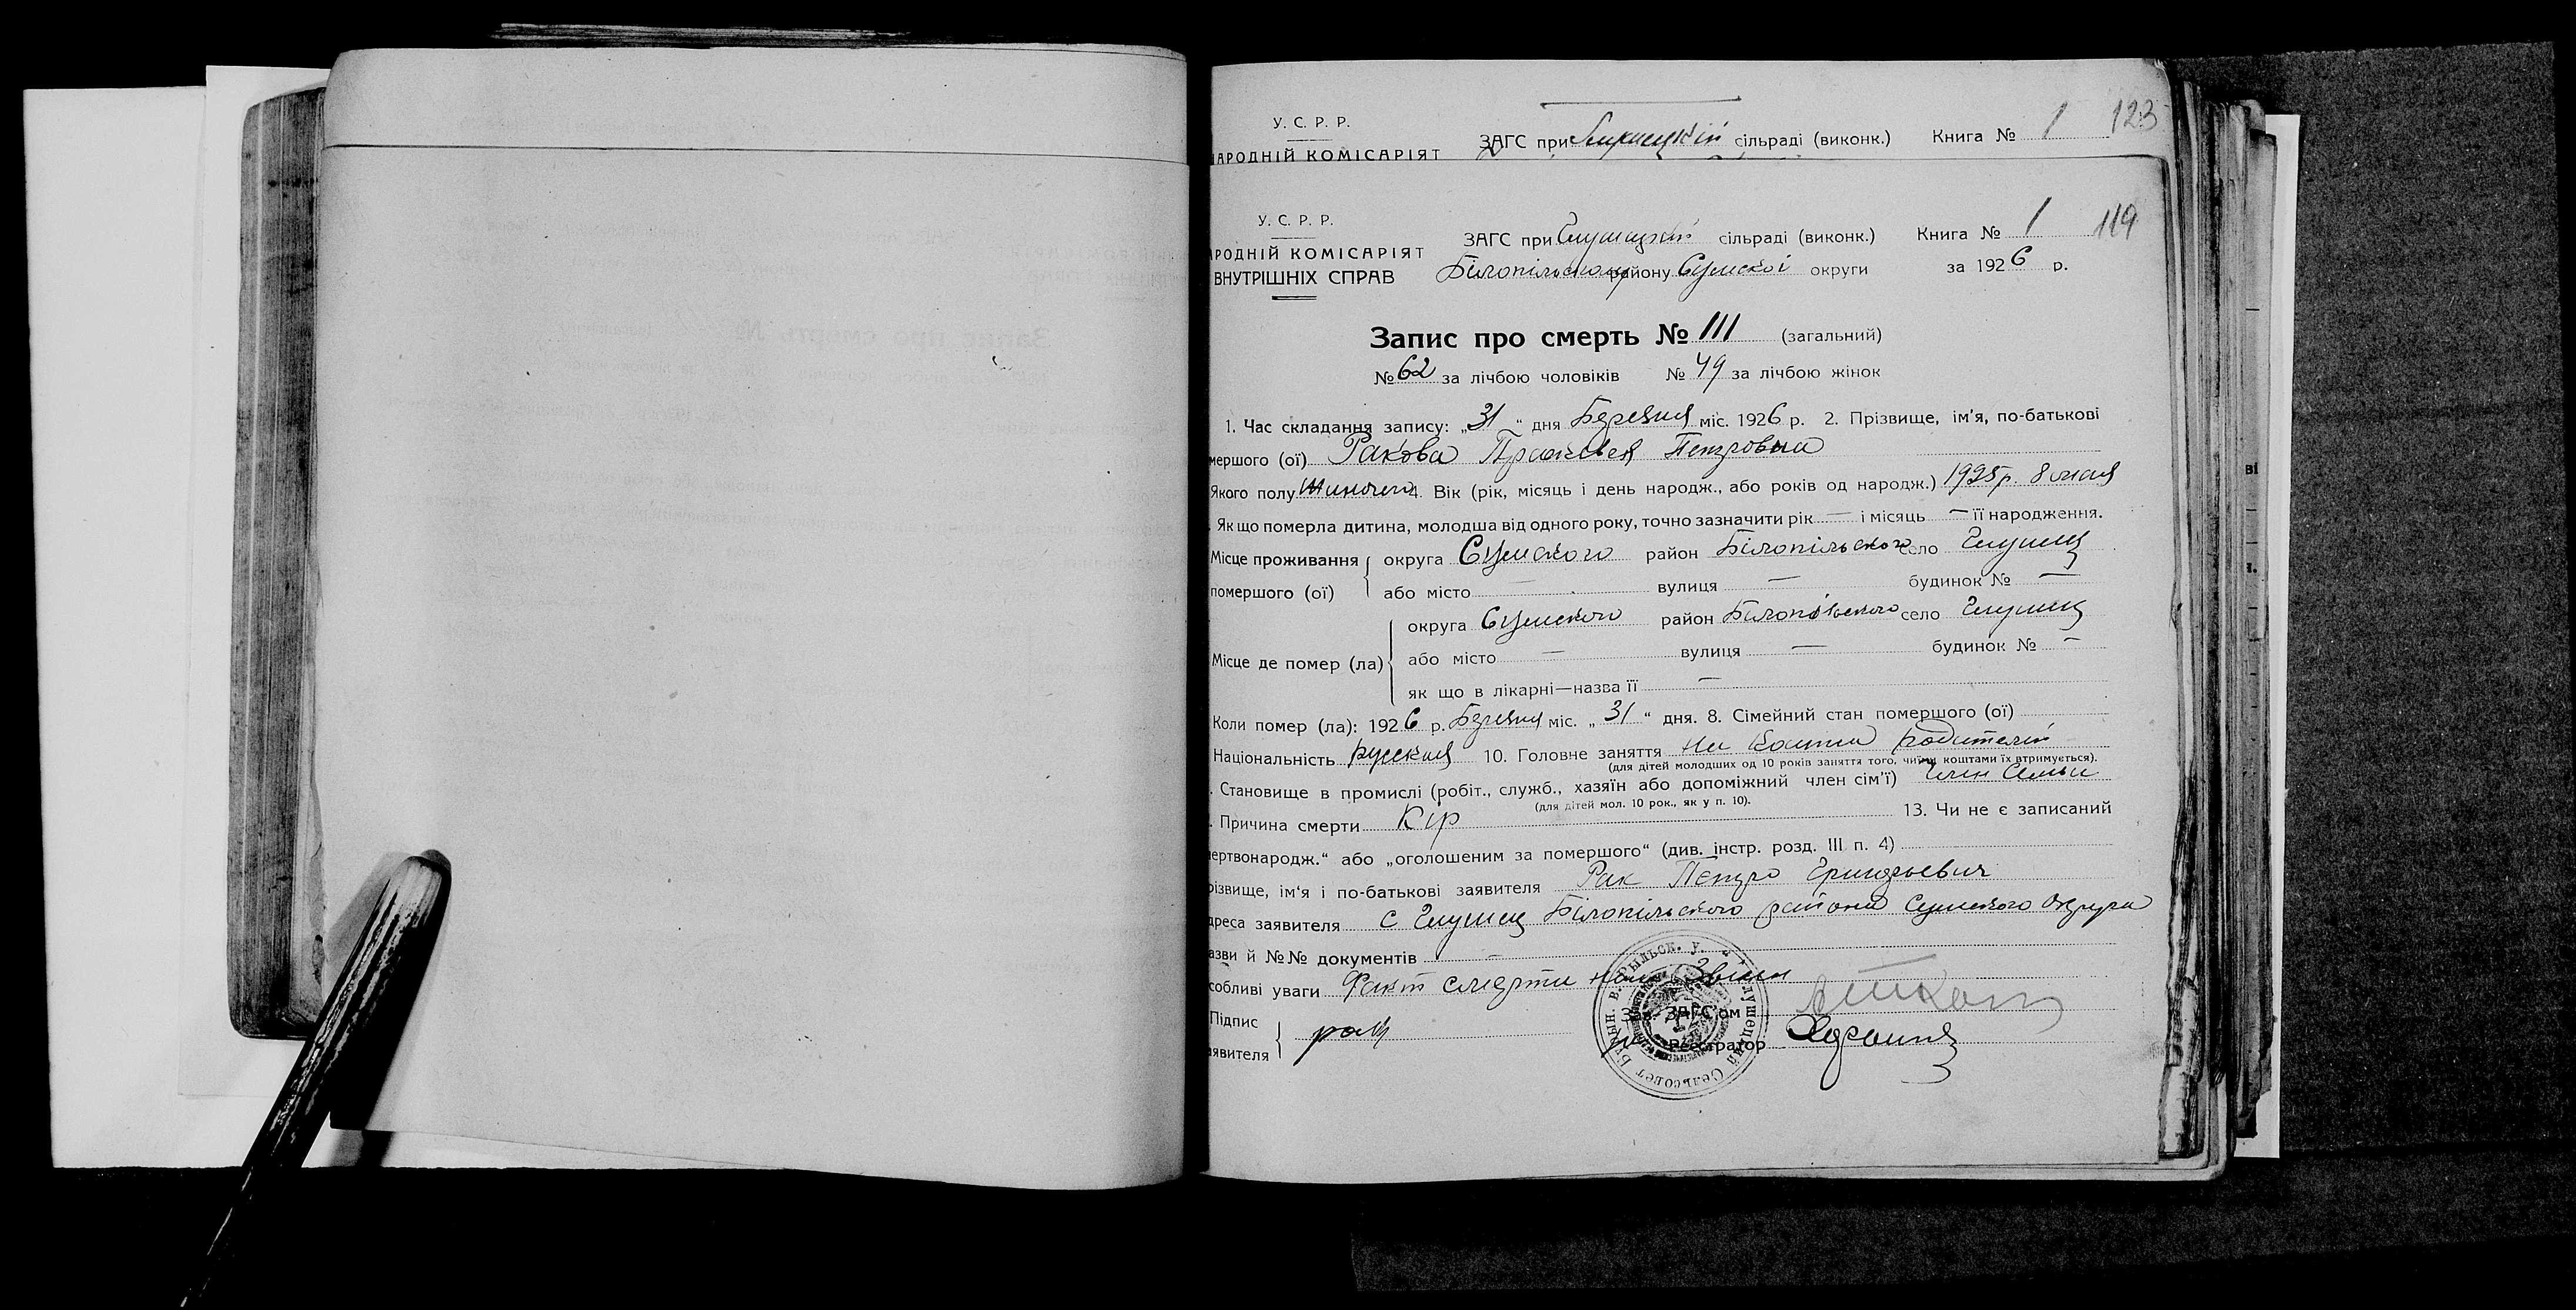 У. С. Р. Р.
НАРОДНІЙ КОМІСАРІЯТ
ЗАГС при сільраді (виконк.) Книга № 1 123
У. С. Р. Р.
РОДНІЙ КОМІСАРІЯТ
ВНУТРІШНІХ СПРАВ
ЗАГС при Глушецкой сільраді (виконк.) Книга № 1 119
Білопільському району Сумскої округи за 1926 р.
Запис про смерть № 111 (загальний)
№ 62 за лічбою чоловіків № 49 за лічбою жінок
1. Час складання запису: „31“ дня Березня міс. 1926 р. 2. Прізвище, ім’я, по-батькові
мершого (ої) Ракова Прасковея Петровна
Якого полу Жиночего 4. Вік (рік, місяць і день народж., або років од народж.) 1925 р. 8 мая
Як що померла дитина, молодша від одного року, точно зазначити рік — і місяць — її народження.
Місце проживання округа Сумского район Білопільского село Глушец
помершого (ої) або місто — вулиця — будинок № —
округа Сумского район Білопільского село Глушец
Місце де помер (ла) або місто — вулиця — будинок № —
як що в лікарні—назва її —
Коли помер (ла): 1926 р. Березня міс. „31“ дня. 8. Сімейний стан помершого (ої)
Національність русская 10. Головне заняття На Кошти родителей
(для дітей молодших од 10 років заняття того, чиїми коштами їх втримується).
. Становище в промислі (робіт., служб., хазяїн або допоміжний член сім’ї) Член Семьи
(для дітей мол. 10 рок., як у п. 10).
. Причина смерти Кір 13. Чи не є записаний
мертвонародж.“ або „оголошеним за помершого“ (див. інстр. розд. III п. 4)
різвище, ім’я і по-батькові заявителя Рак Петро Григорьевич
дреса заявителя С Глушец Білопільского района Сумского Округа
азви й №№ документів —
собливі уваги Факт смерти
Зав. ЗАГС’ом
Підпис
аявителя рак Реєстратор
Глушецкий Сельсовет
ві